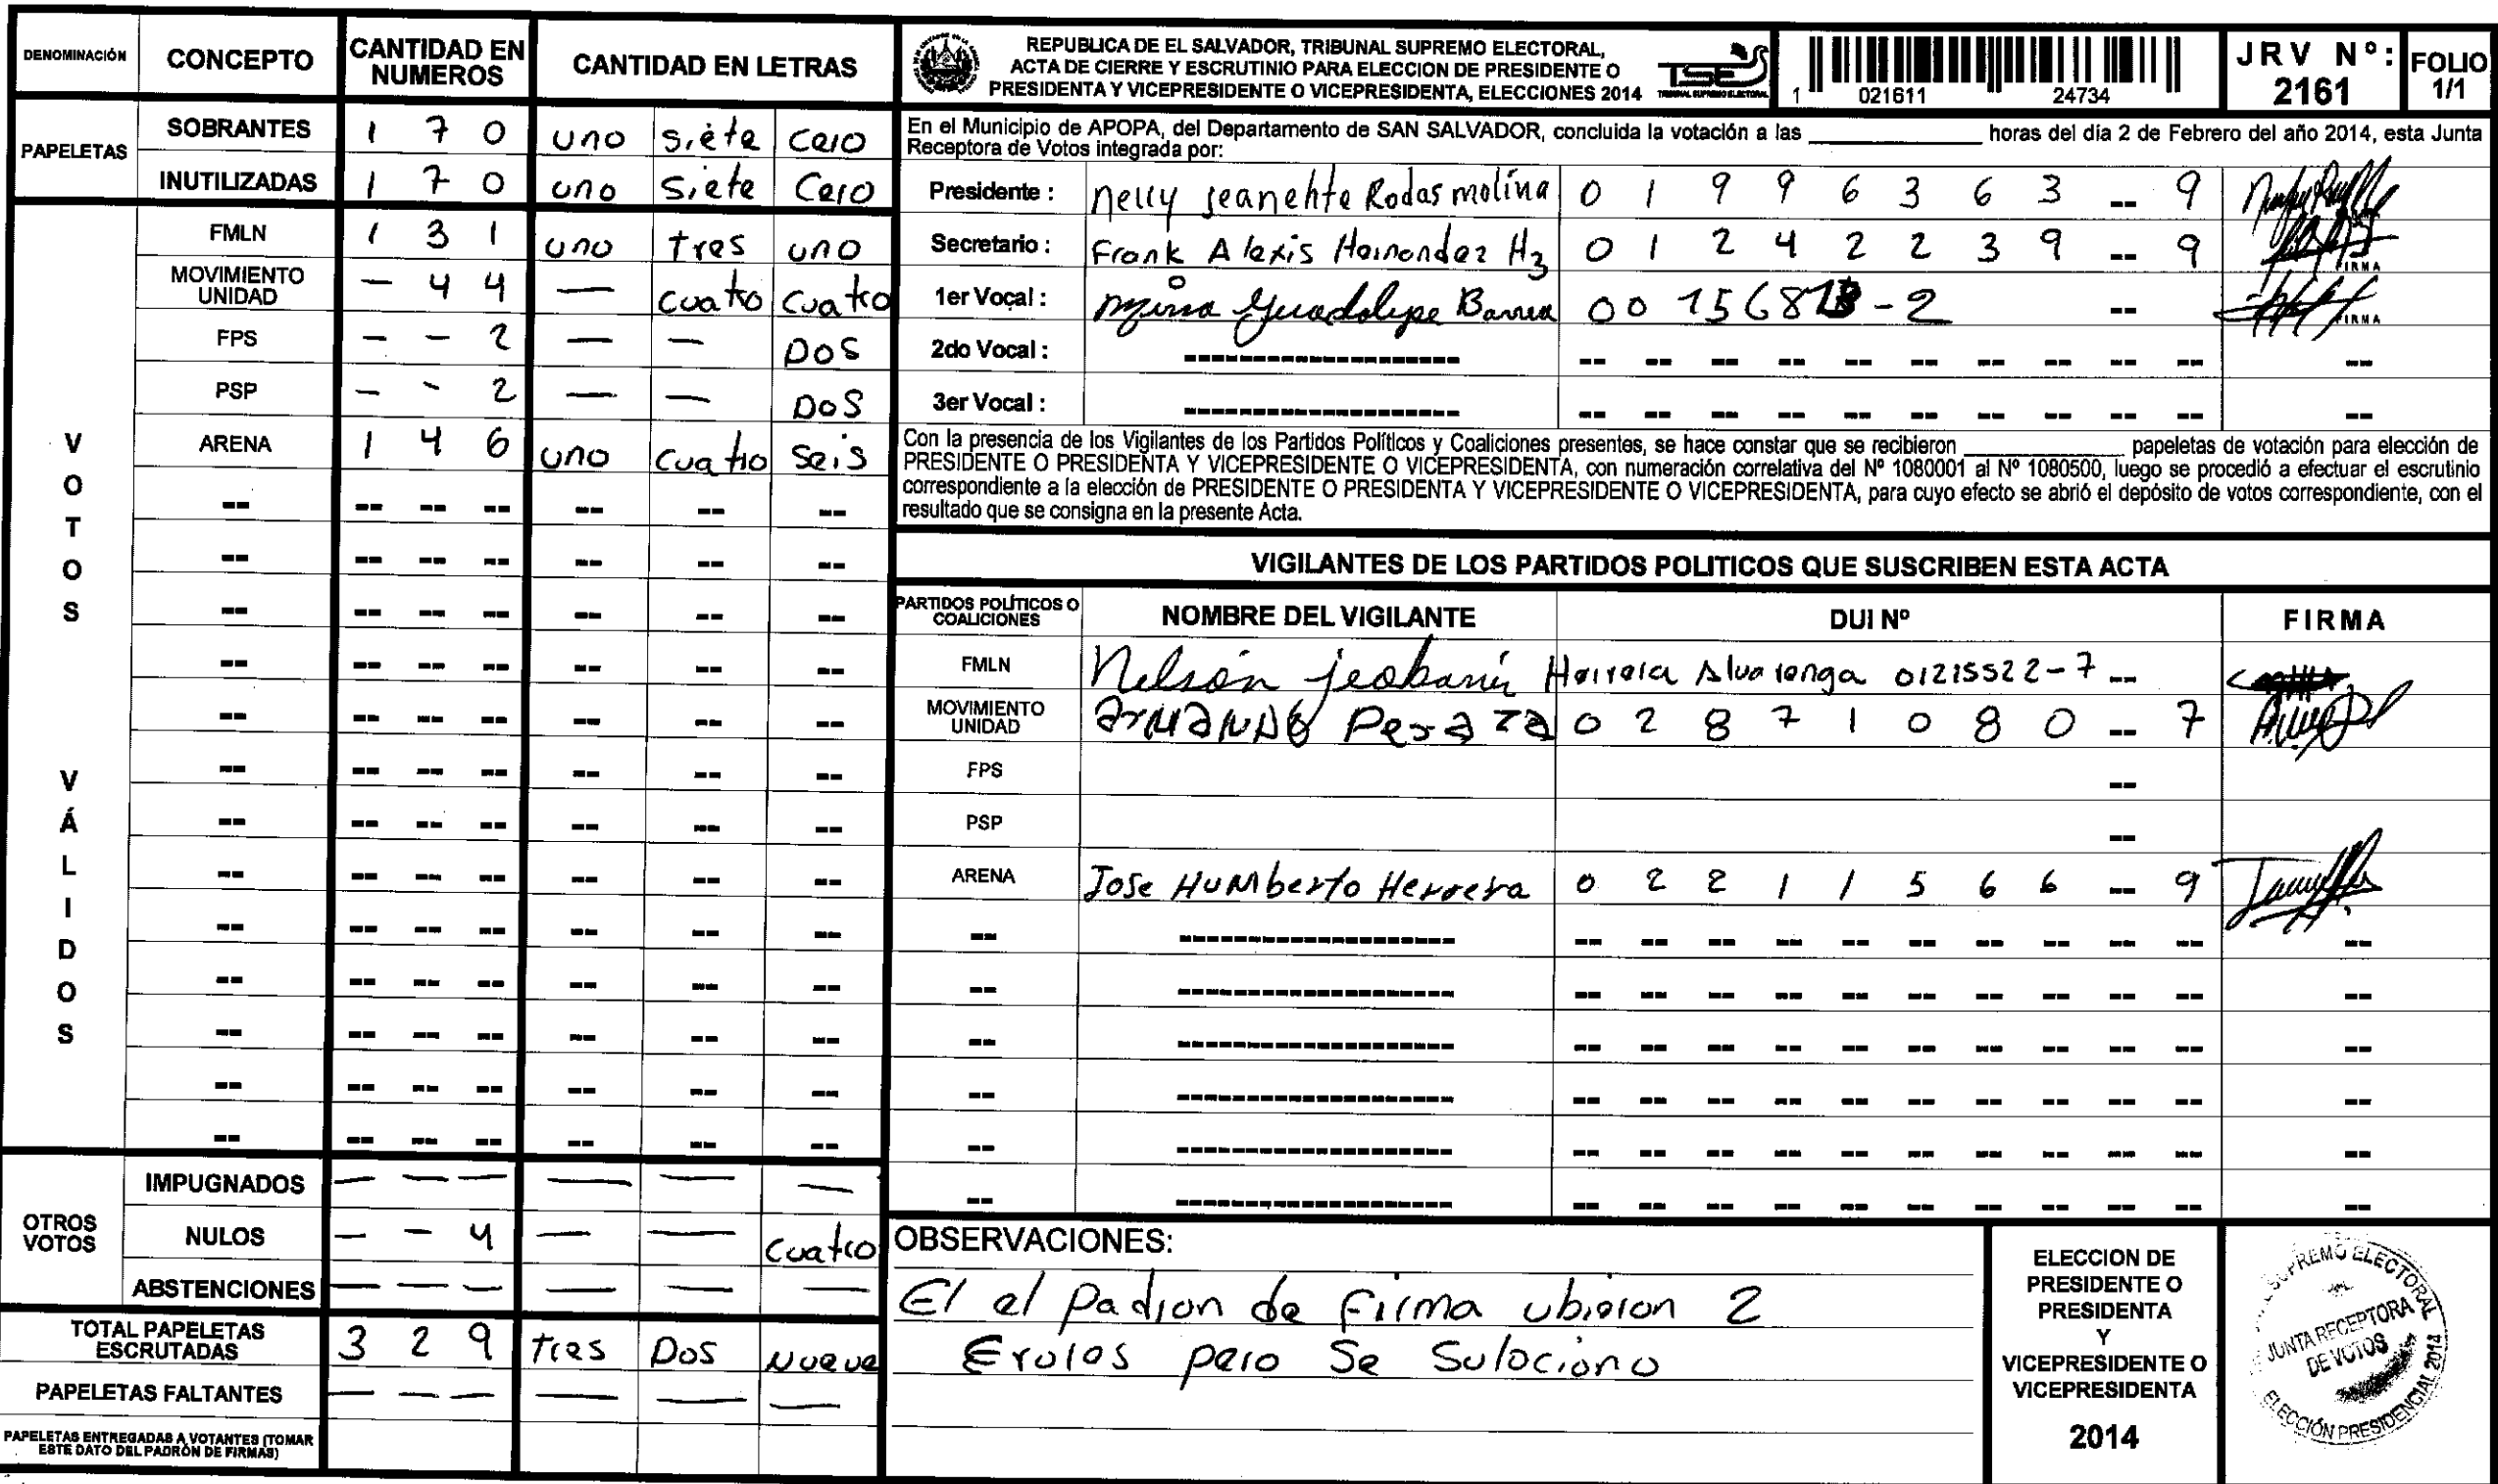 DENOMINACIÓN CONCEPTO CANTIDAD EN NUMEROS CANTIDAD EN LETRAS
PAPELETAS
SOBRANTES 1 7 0 uno siete cero
INUTILIZADAS 1 7 0 uno siete cero
VOTOS VÁLIDOS
FMLN 1 3 1 uno tres uno
MOVIMIENTO UNIDAD — 4 4 — cuatro cuatro
FPS — — 2 — — DOS
PSP — - 2 — — DOS
ARENA 1 4 6 uno cuatro seis
OTROS VOTOS
IMPUGNADOS — — — — — —
NULOS — — 4 — — cuatro
ABSTENCIONES — — — — — —
TOTAL PAPELETAS ESCRUTADAS 3 2 9 tres DOS Nueve
PAPELETAS FALTANTES — — — — — —
PAPELETAS ENTREGADAS A VOTANTES (TOMAR ESTE DATO DEL PADRÓN DE FIRMAS)
REPUBLICA DE EL SALVADOR, TRIBUNAL SUPREMO ELECTORAL,
ACTA DE CIERRE Y ESCRUTINIO PARA ELECCION DE PRESIDENTE O
PRESIDENTA Y VICEPRESIDENTE O VICEPRESIDENTA, ELECCIONES 2014
TSE
TRIBUNAL SUPREMO ELECTORAL
1 021611 24734
JRV Nº: 2161
FOLIO 1/1
En el Municipio de APOPA, del Departamento de SAN SALVADOR, concluida la votación a las ____ horas del día 2 de Febrero del año 2014, esta Junta
Receptora de Votos integrada por:
Presidente : Nelly Jeanehte Rodas molina 0 1 9 9 6 3 6 3 -- 9
Secretario : Frank Alexis Hernandez Hz 0 1 2 4 2 2 3 9 -- 9 FIRMA
1er Vocal : Guadalupe 00 - 2 -- FIRMA
2do Vocal :
3er Vocal :
Con la presencia de los Vigilantes de los Partidos Políticos y Coaliciones presentes, se hace constar que se recibieron ____ papeletas de votación para elección de
PRESIDENTE O PRESIDENTA Y VICEPRESIDENTE O VICEPRESIDENTA, con numeración correlativa del Nº 1080001 al Nº 1080500, luego se procedió a efectuar el escrutinio
correspondiente a la elección de PRESIDENTE O PRESIDENTA Y VICEPRESIDENTE O VICEPRESIDENTA, para cuyo efecto se abrió el depósito de votos correspondiente, con el
resultado que se consigna en la presente Acta.
VIGILANTES DE LOS PARTIDOS POLITICOS QUE SUSCRIBEN ESTA ACTA
PARTIDOS POLÍTICOS O COALICIONES NOMBRE DEL VIGILANTE DUI Nº FIRMA
FMLN Nelson Jeobanis Herrera Alvarenga 01215522-7 --
MOVIMIENTO UNIDAD armando Peraza 0 2 8 7 1 0 8 0 -- 7
FPS --
PSP --
ARENA Jose HUMberto Herrera 0 2 2 1 1 5 6 6 -- 9
OBSERVACIONES:
El el Padron de firma ubieron 2
Erores pero Se Soluciono
ELECCION DE
PRESIDENTE O
PRESIDENTA
Y
VICEPRESIDENTE O
VICEPRESIDENTA
2014
SUPREMO ELECTORAL
JUNTA RECEPTORA
DE VOTOS
ELECCIÓN PRESIDENCIAL 2014